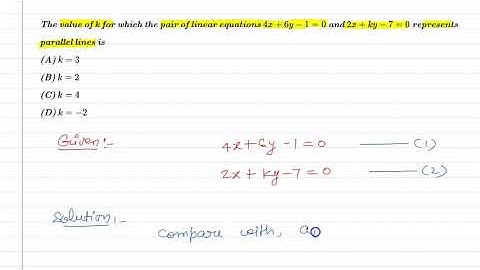 The value of k for which the pair of linear equations 4x + 6y − 1 = 0 and 2x + ky − 7 = 0 represents
parallel lines is
(A) k = 3
(B) k = 2
(C) k = 4
(D) k = −2
Given:-
4x+6y -1=0 —— (1)
2x+ky-7=0 —— (2)
Solution:-
compare with, a